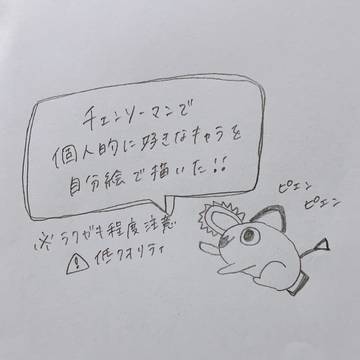 チェンソーマンで
個人的に好きなキャラを
自分絵で描いた!!
※ラクガキ程度注意
⚠低クオリティ
ピエン
ピエン